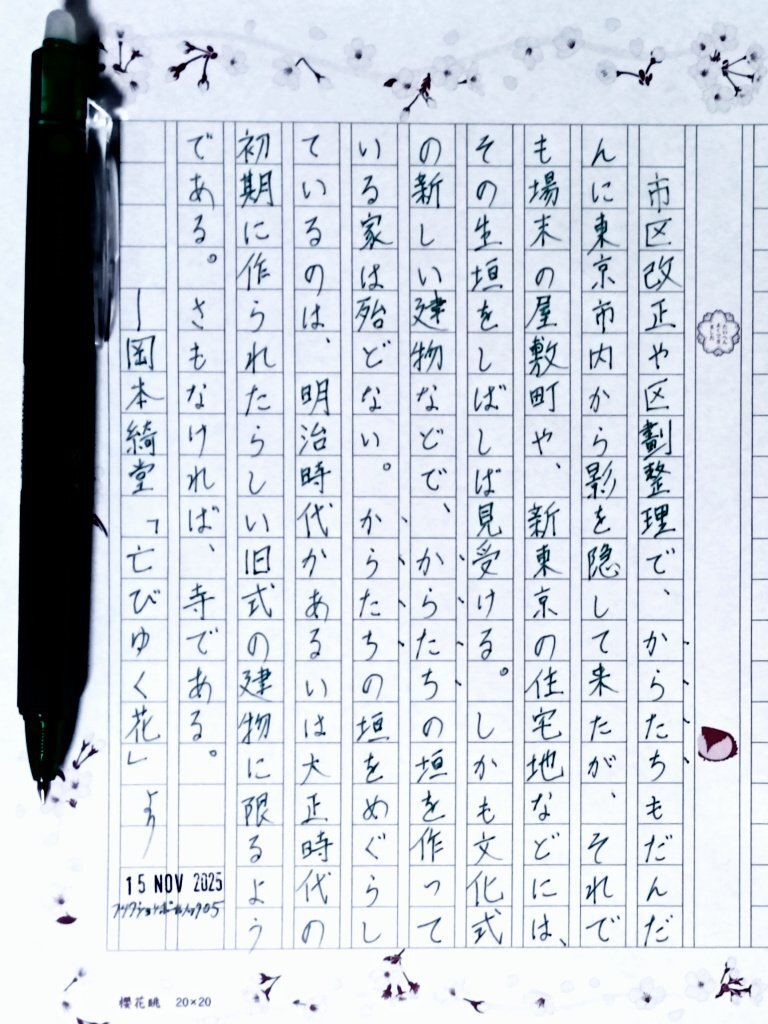 市区改正や区劃整理で、からたちもだんだ
んに東京市内から影を隠して来たが、それで
も場末の屋敷町や、新東京の住宅地などには、
その生垣をしばしば見受ける。しかも文化式
の新しい建物などで、からたちの垣を作って
いる家は殆どない。からたちの垣をめぐらし
ているのは、明治時代かあるいは大正時代の
初期に作られたらしい旧式の建物に限るよう
である。さもなければ、寺である。
―岡本綺堂「亡びゆく花」より
15 NOV 2025
櫻花眺 20×20